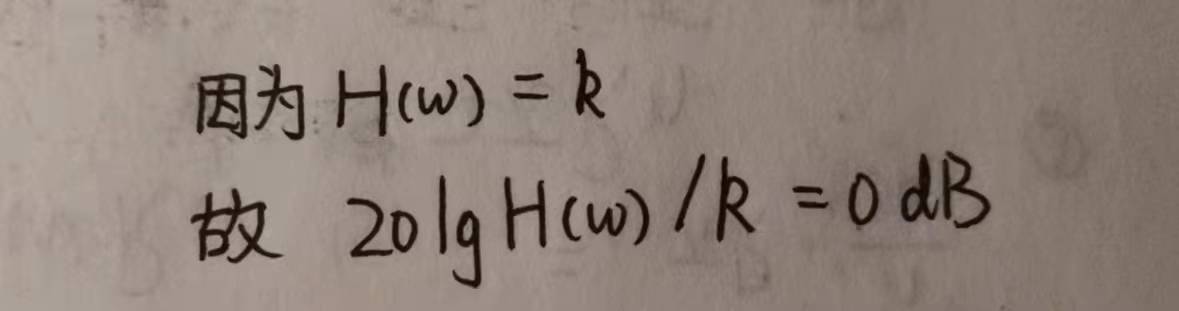 因为 H(w) = k
故 20 lg H(w) / k = 0 dB